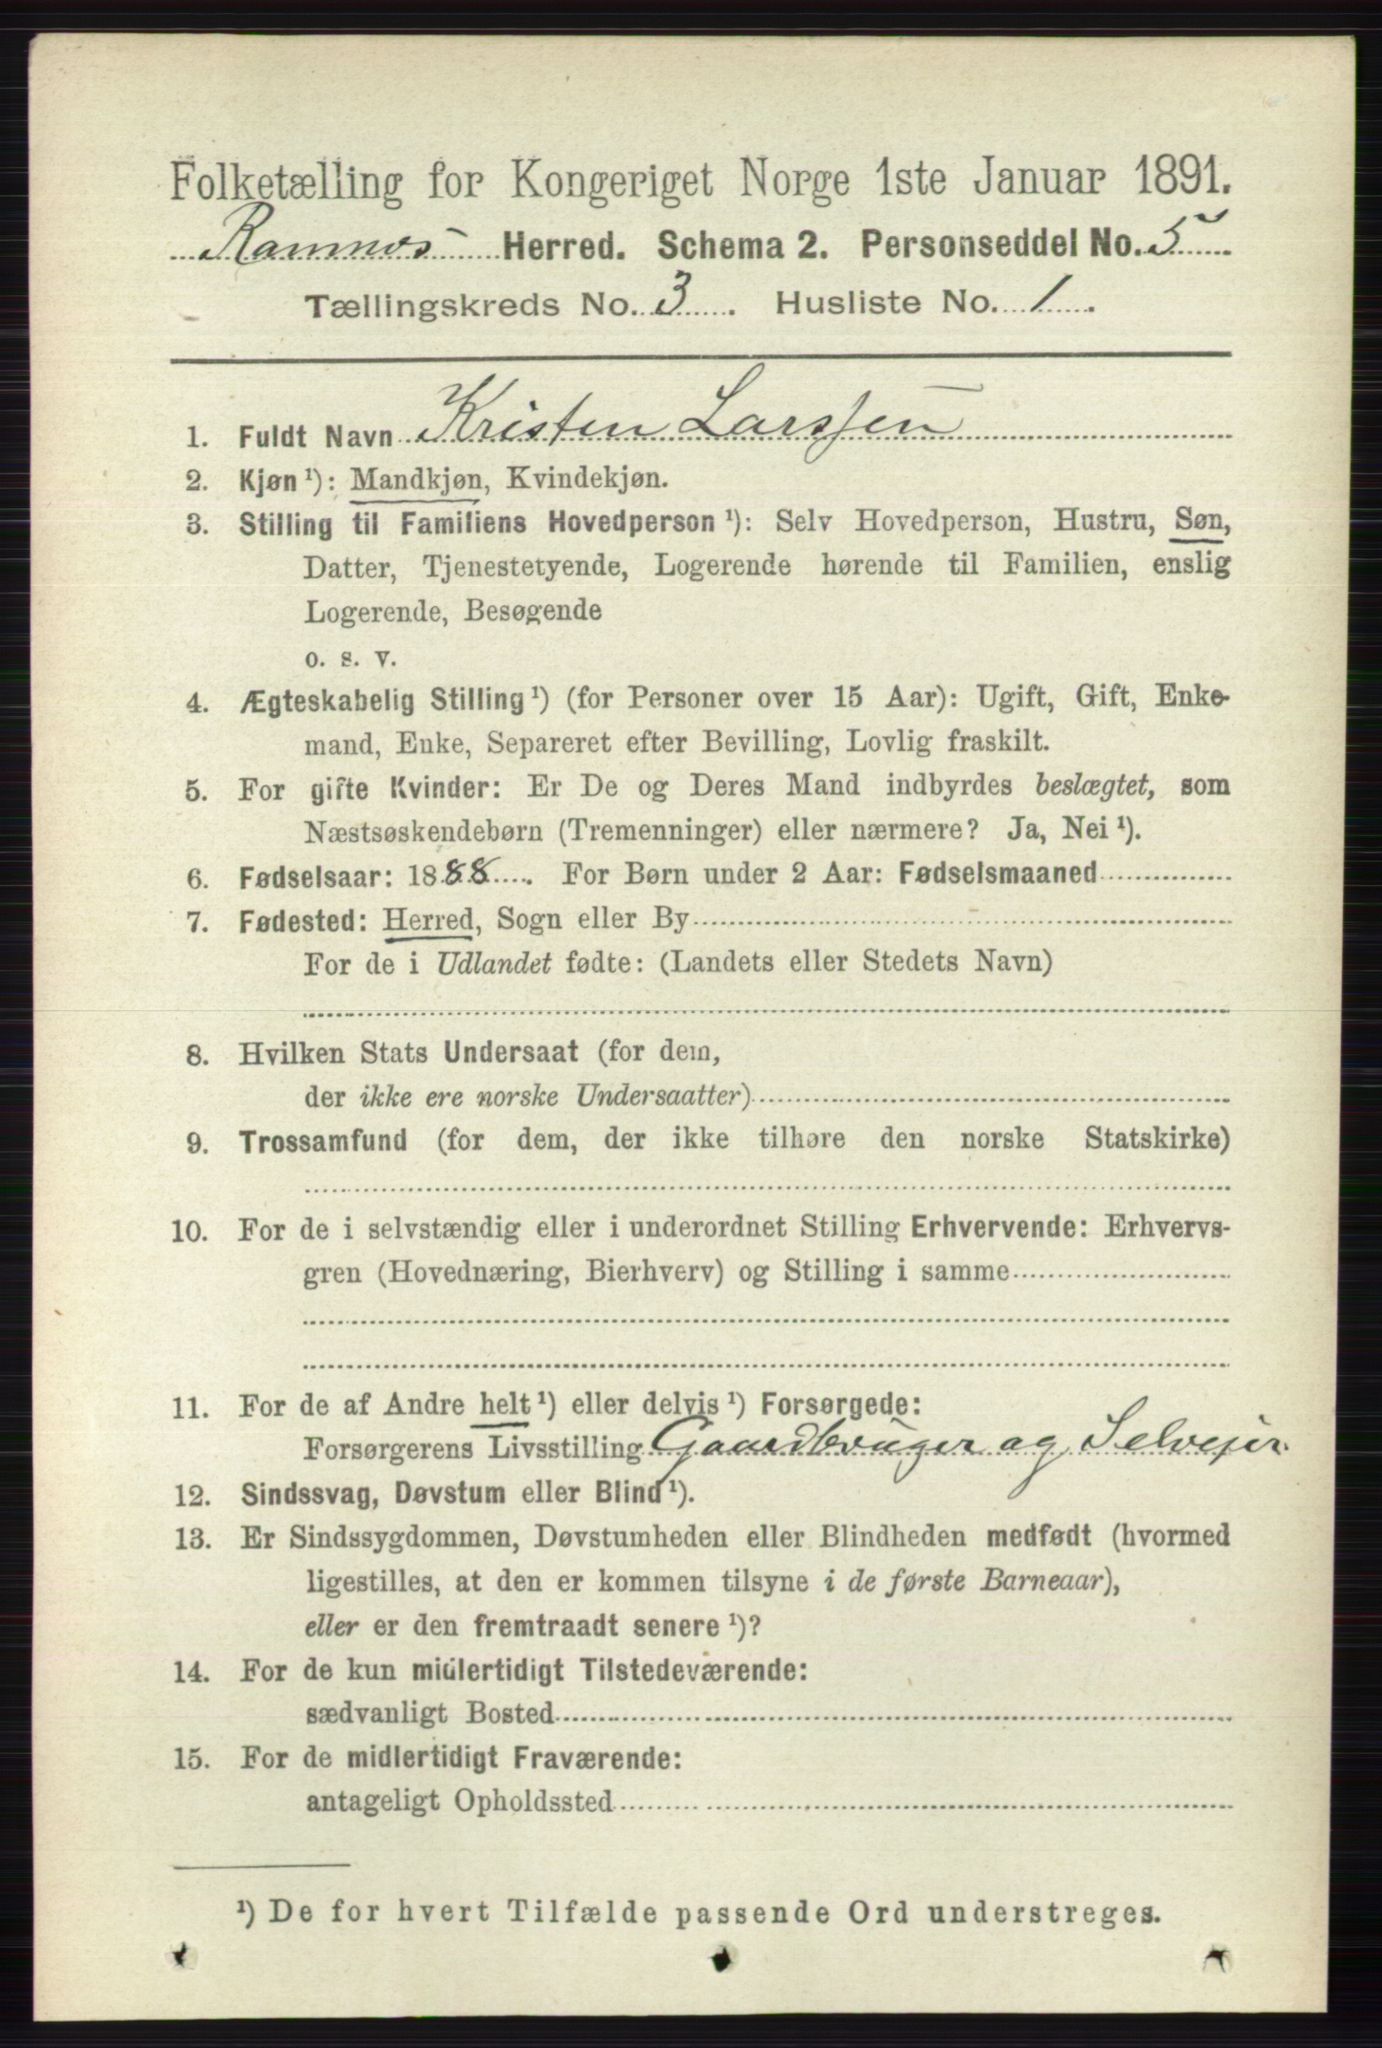 Folketælling for Kongeriget Norge 1ste Januar 1891.
Ramnes Herred. Schema 2. Personseddel No. 5
Tællingskreds No. 3. Husliste No. 1.
1. Fuldt Navn Kristen Larssen
2. Kjøn ¹): Mandkjøn, Kvindekjøn.
3. Stilling til Familiens Hovedperson ¹): Selv Hovedperson, Hustru, Søn,
Datter, Tjenestetyende, Logerende hørende til Familien, enslig
Logerende, Besøgende
o. s. v.
4. Ægteskabelig Stilling ¹) (for Personer over 15 Aar): Ugift, Gift, Enke-
mand, Enke, Separeret efter Bevilling, Lovlig fraskilt.
5. For gifte Kvinder: Er De og Deres Mand indbyrdes beslægtet, som
Næstsøskendebørn (Tremenninger) eller nærmere? Ja, Nei ¹).
6. Fødselsaar: 1888. For Børn under 2 Aar: Fødselsmaaned
7. Fødested: Herred, Sogn eller By
For de i Udlandet fødte: (Landets eller Stedets Navn)
8. Hvilken Stats Undersaat (for dem,
der ikke ere norske Undersaatter)
9. Trossamfund (for dem, der ikke tilhøre den norske Statskirke)
10. For de i selvstændig eller i underordnet Stilling Erhvervende: Erhvervs-
gren (Hovednæring, Bierhverv) og Stilling i samme
11. For de af Andre helt ¹) eller delvis ¹) Forsørgede:
Forsørgerens Livsstilling Gaardbruger og Selvejer.
12. Sindssvag, Døvstum eller Blind ¹).
13. Er Sindssygdommen, Døvstumheden eller Blindheden medfødt (hvormed
ligestilles, at den er kommen tilsyne i de første Barneaar),
eller er den fremtraadt senere ¹)?
14. For de kun midlertidigt Tilstedeværende:
sædvanligt Bosted
15. For de midlertidigt Fraværende:
antageligt Opholdssted
¹) De for hvert Tilfælde passende Ord understreges.